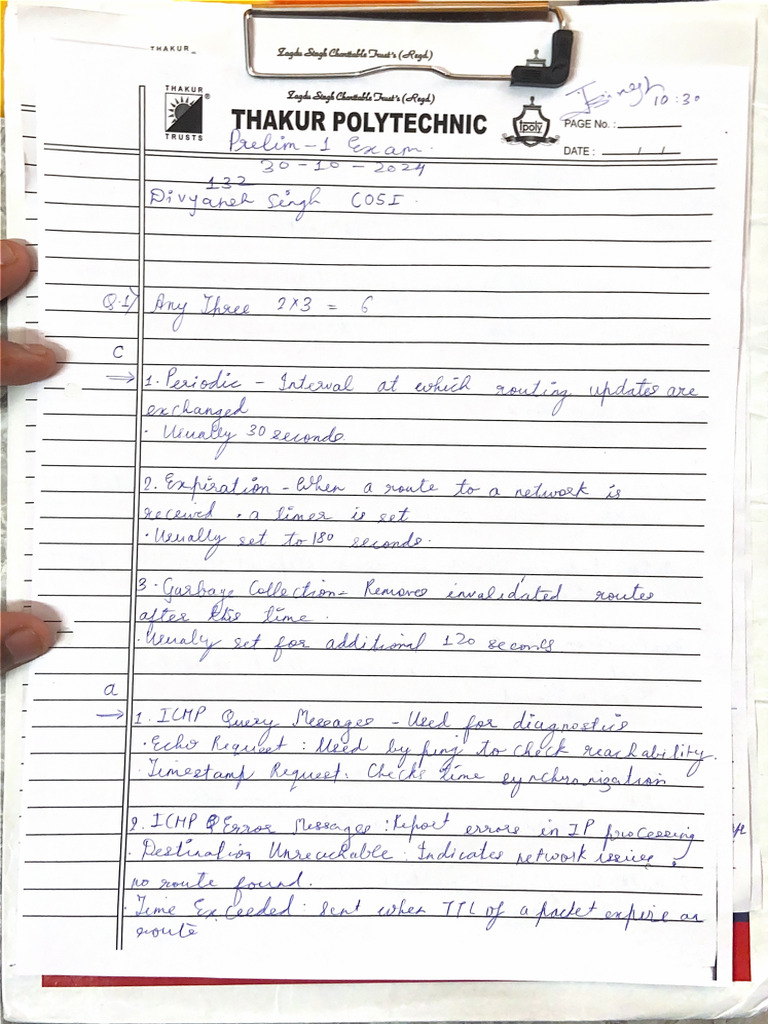 THAKUR
Zagdu Singh Charitable Trust's (Regd.)
Zagdu Singh Charitable Trust's (Regd.)
THAKUR
TRUSTS
®
THAKUR POLYTECHNIC
tpoly
10:30
PAGE No. :
DATE : / /
Prelim-1 Exam.
30-10-2024
132
Divyansh Singh CO5I.
Q.1) Any Three 2x3 = 6
C
⇒ 1. Periodic - Interval at which routing updates are
exchanged
· Usually 30 seconds.
2. Expiration - When a route to a network is
received . a timer is set
· Usually set to 180 seconds.
3. Garbage Collection - Removes invalidated routes
after this time.
· Usually set for additional 120 seconds
a
→ 1. ICMP Query Messages - Used for diagnostis
· Echo Request : Used by ping to check reachability.
· Timestamp Request: Checks time synchronization
2. ICMP Error Messages : Report errors in IP processing
· Destination Unreachable : Indicates network issues,
no route found.
· Time Exceeded: Sent when TTL of a packet expire on
route